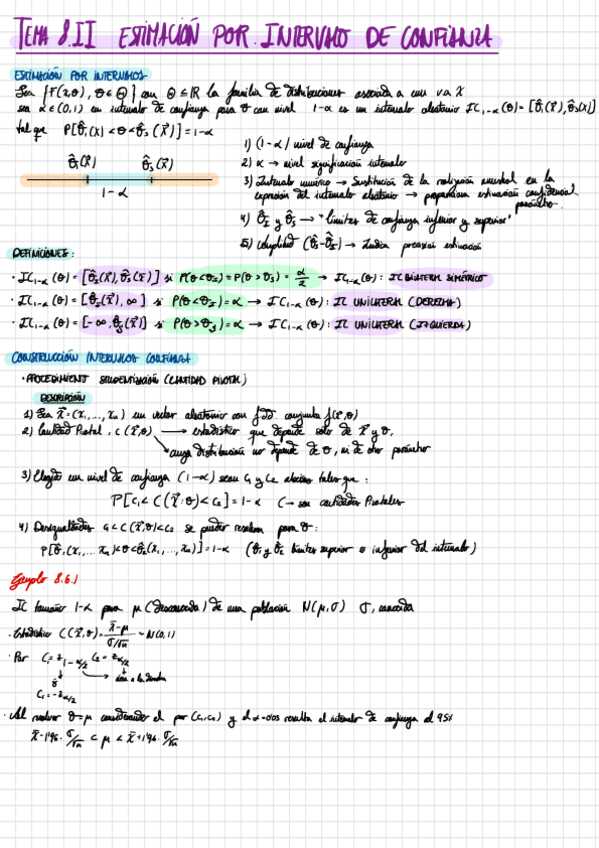 TEMA 8.II ESTIMACIÓN POR INTERVALO DE CONFIANZA
ESTIMACIÓN POR INTERVALOS
Sea {F(x,θ), θ∈Θ} con Θ⊆ℝ la familia de distribuciones asociada a una v.a X
sea α∈(0,1) un intervalo de confianza para θ con nivel 1-α es un intervalo aleatorio IC₁₋α(θ) = [θ̂ᵢ(X⃗), θ̂ₛ(X⃗)]
tal que P[θ̂ᵢ(X) < θ < θ̂ₛ(X⃗)] = 1-α
1) (1-α) nivel de confianza
θ̂ᵢ(X⃗) θ̂ₛ(X⃗)
2) α → nivel significación intervalo
1-α
3) Intervalo numérico → Sustitución de la realización muestral en la
expresión del intervalo aleatorio → proporciona estimación confidencial
parámetro.
4) θ̂ᵢ y θ̂ₛ → "límites de confianza inferior y superior"
5) Amplitud (θ̂ₛ-θ̂ᵢ) → Indica precisión estimación
DEFINICIONES:
· IC₁₋α(θ) = [θ̂ᵢ(X⃗), θ̂ₛ(X⃗)] si P(θ<θᵢ) = P(θ>θₛ) = α/2 → IC₁₋α(θ): IC BILATERAL SIMÉTRICO
· IC₁₋α(θ) = [θ̂ᵢ(X⃗), ∞] si P(θ<θᵢ) = α → IC₁₋α(θ): IC UNILATERAL (DERECHA)
· IC₁₋α(θ) = [-∞, θ̂ₛ(X⃗)] si P(θ>θₛ) = α → IC₁₋α(θ): IC UNILATERAL (IZQUIERDA)
CONSTRUCCIÓN INTERVALOS CONFIANZA
· PROCEDIMIENT STUDENTIZACIÓN (CANTIDAD PIVOTAL)
DESCRIPCIÓN
1) Sea X⃗=(x₁,...,xₙ) un vector aleatorio con conjunta f(X⃗,θ)
2) Cantidad Pivotal, C(X⃗,θ) → estadístico que depende sólo de X⃗ y θ,
cuya distribución no depende de θ, ni de otro parámetro
3) Elegido un nivel de confianza (1-α) sean C₁ y C₂ tales que:
P[C₁ < C(X⃗;θ) < C₂] = 1-α C → son cantidades Pivotales
4) Desigualdades C₁<C(X⃗,θ)<C₂ se pueden resolver para θ:
P[θ̂₁(x₁,...,xₙ)<θ<θ̂₂(x₁,...,xₙ)] = 1-α (θ̂₁ y θ̂₂ límites superior e inferior del intervalo)
Ejemplo 8.6.1
IC tamaño 1-α para μ (desconocida) de una población N(μ,σ) σ, conocida
· Estadístico C(X⃗,θ) = x̄-μ / σ/√n ~ N(0,1)
· Par C₁ = z₁₋α/₂ C₂ = zα/₂
ó → área a la derecha
C₁ = -zα/₂
· Al resolver θ=μ considerando el par (C₁,C₂) y el α=0'05 resulta el intervalo de confianza al 95%
x̄-1'96·σ/√n < μ < x̄+1'96·σ/√n